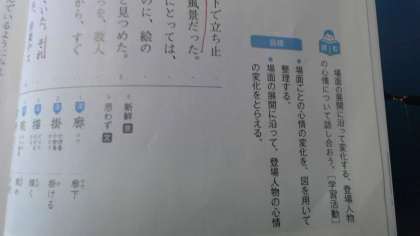 読む
場面の展開に沿って変化する、登場人物
の心情について話し合おう。[学習活動]
目標
●場面ごとの心情の変化を、図を用いて
整理する。
●場面の展開に沿って、登場人物の心情
の変化をとらえる。
下で立ち止
風景だった。
にとっては、
のに、絵の
と見つめた。
っを、故人
から、すぐ
いた。それ
ているように
新鮮 意
思わず 文
廊 廊下
掛 掛ける
描 描く